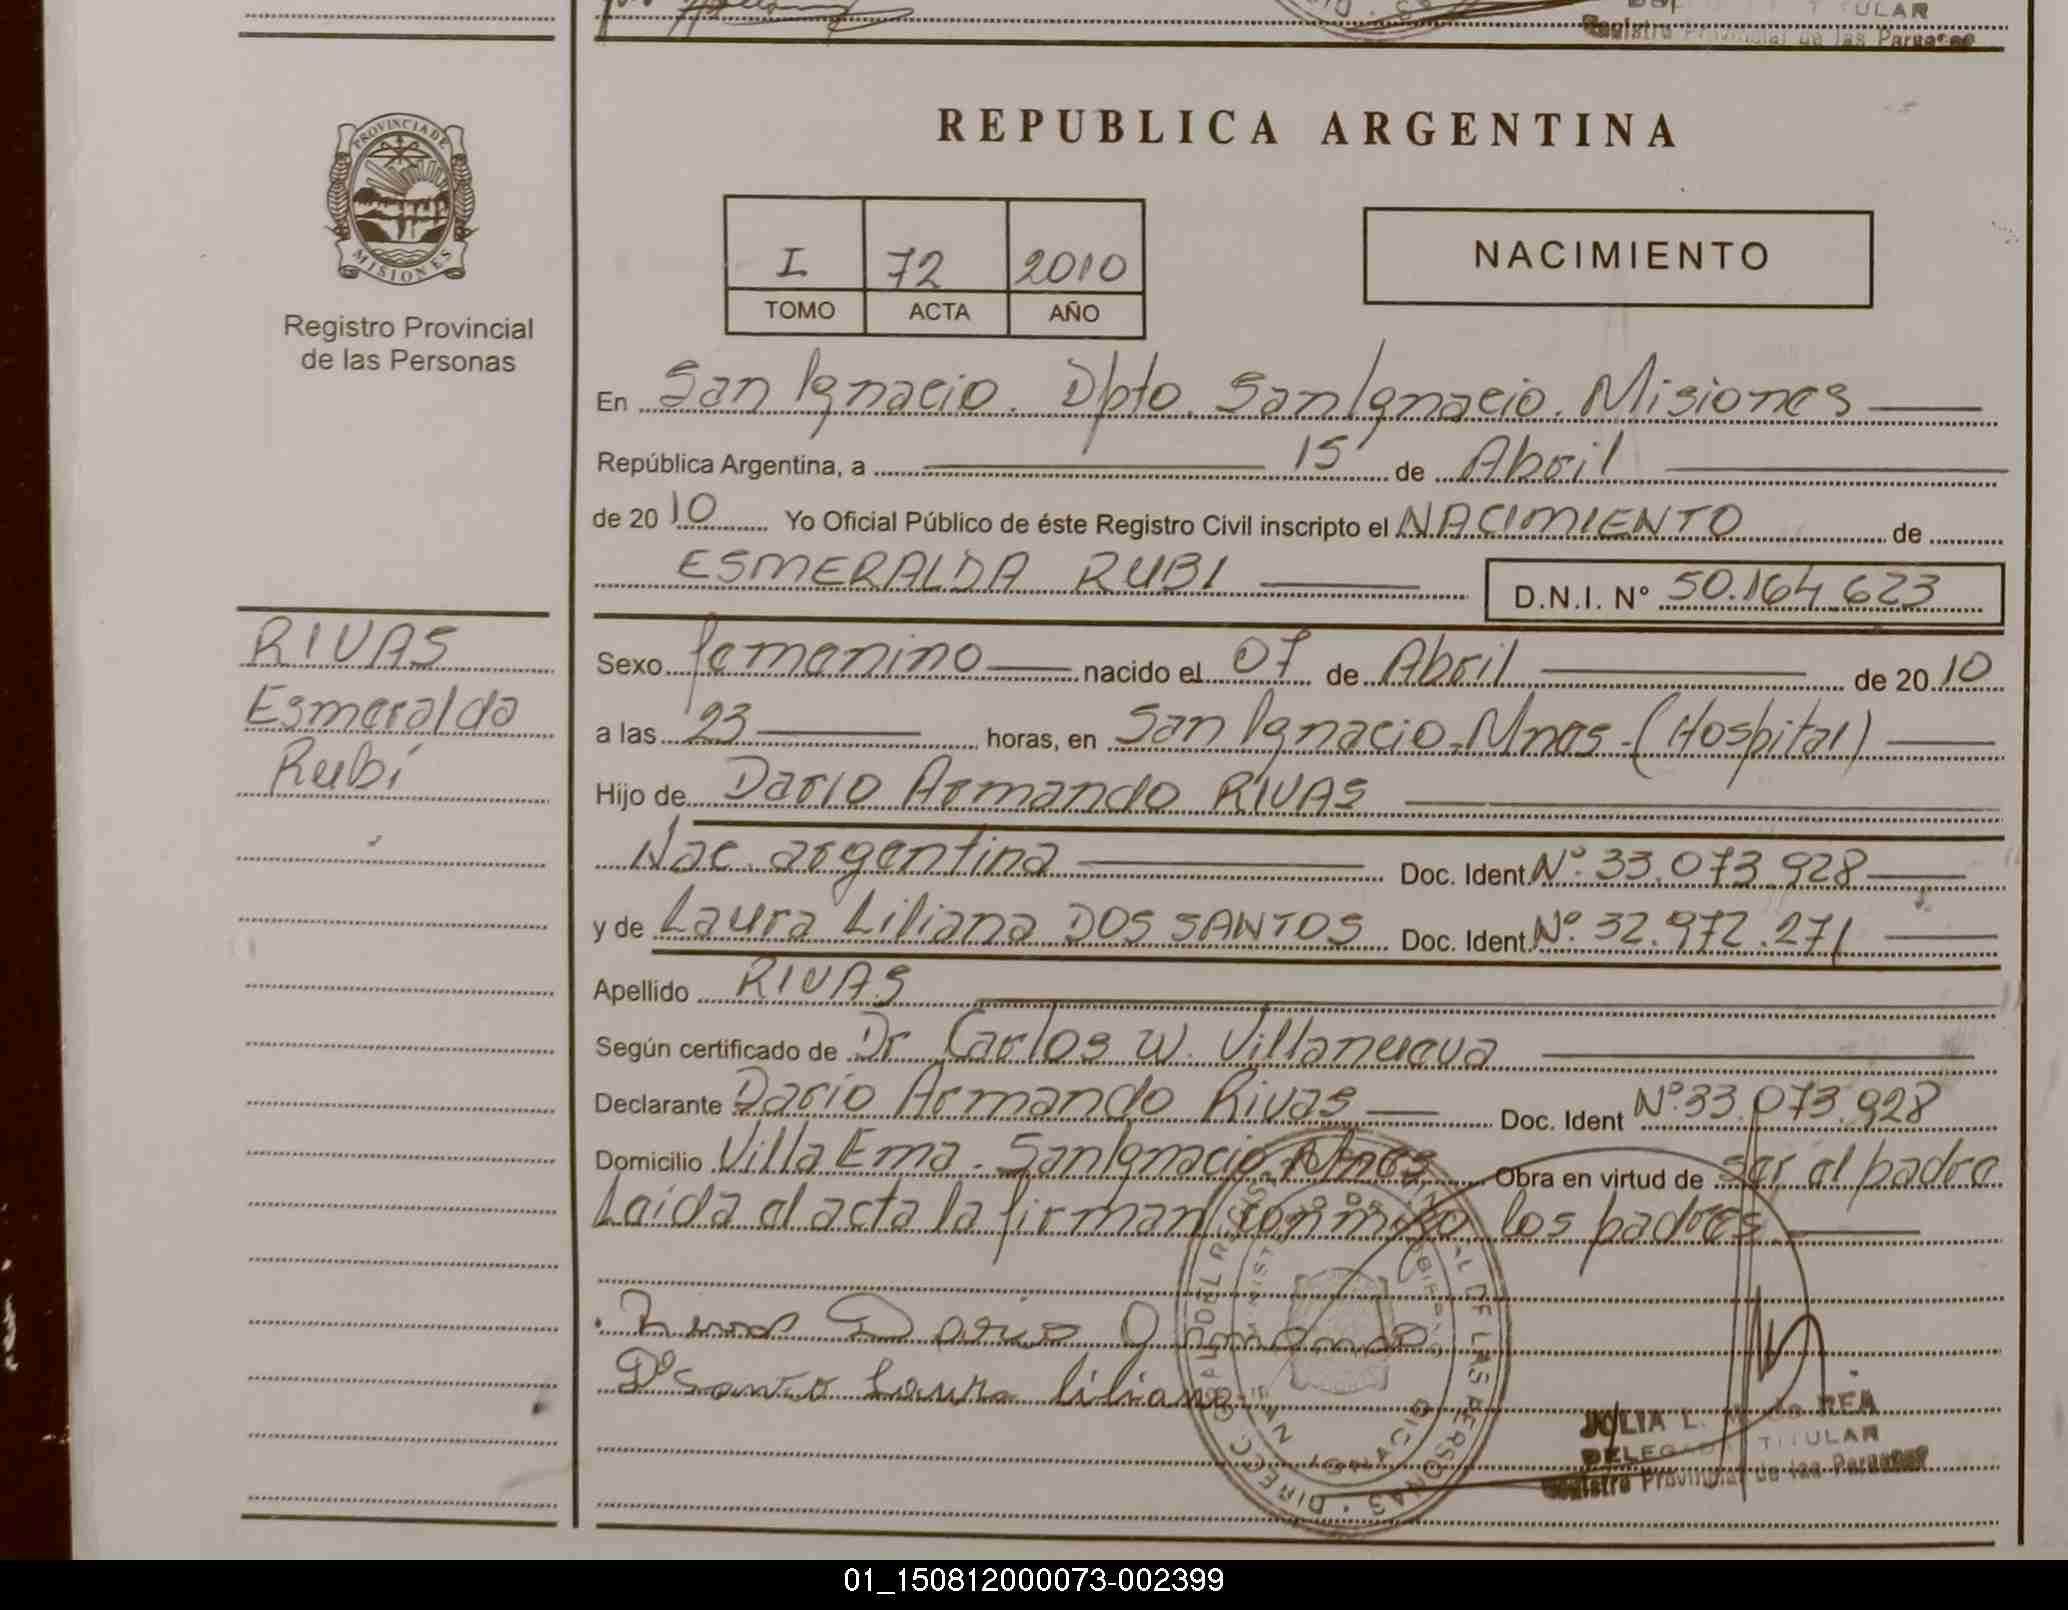 TITULAR
Registro Provincial de las Personas
REPUBLICA ARGENTINA
PROVINCIA DE
MISIONES
Registro Provincial
de las Personas
I 72 2010
TOMO ACTA AÑO
NACIMIENTO
En San Ignacio. Dpto. San Ignacio. Misiones
República Argentina, a 15 de Abril
de 2010 Yo Oficial Público de éste Registro Civil inscripto el NACIMIENTO de
ESMERALDA RUBI D.N.I. N° 50.164.623
RIVAS
Esmeralda
Rubí
Sexo femenino nacido el 07 de Abril de 2010
a las 23 horas, en San Ignacio-Mnes-(Hospital)
Hijo de Darío Armando RIVAS
Nac. argentina Doc. Ident. N°. 33.073.928
y de Laura Liliana DOS SANTOS Doc. Ident. N°. 32.972.271
Apellido RIVAS
Según certificado de Dr. Carlos W. Villanueva
Declarante Darío Armando Rivas Doc. Ident N°. 33.073.928
Domicilio Villa Ema. San Ignacio, Mnes Obra en virtud de ser el padre
Leída el acta la firman conmigo los padres
Darío
Laura Liliana
JULIA L. REA
DELEGADA TITULAR
Registro Provincial de las Personas
01_150812000073-002399